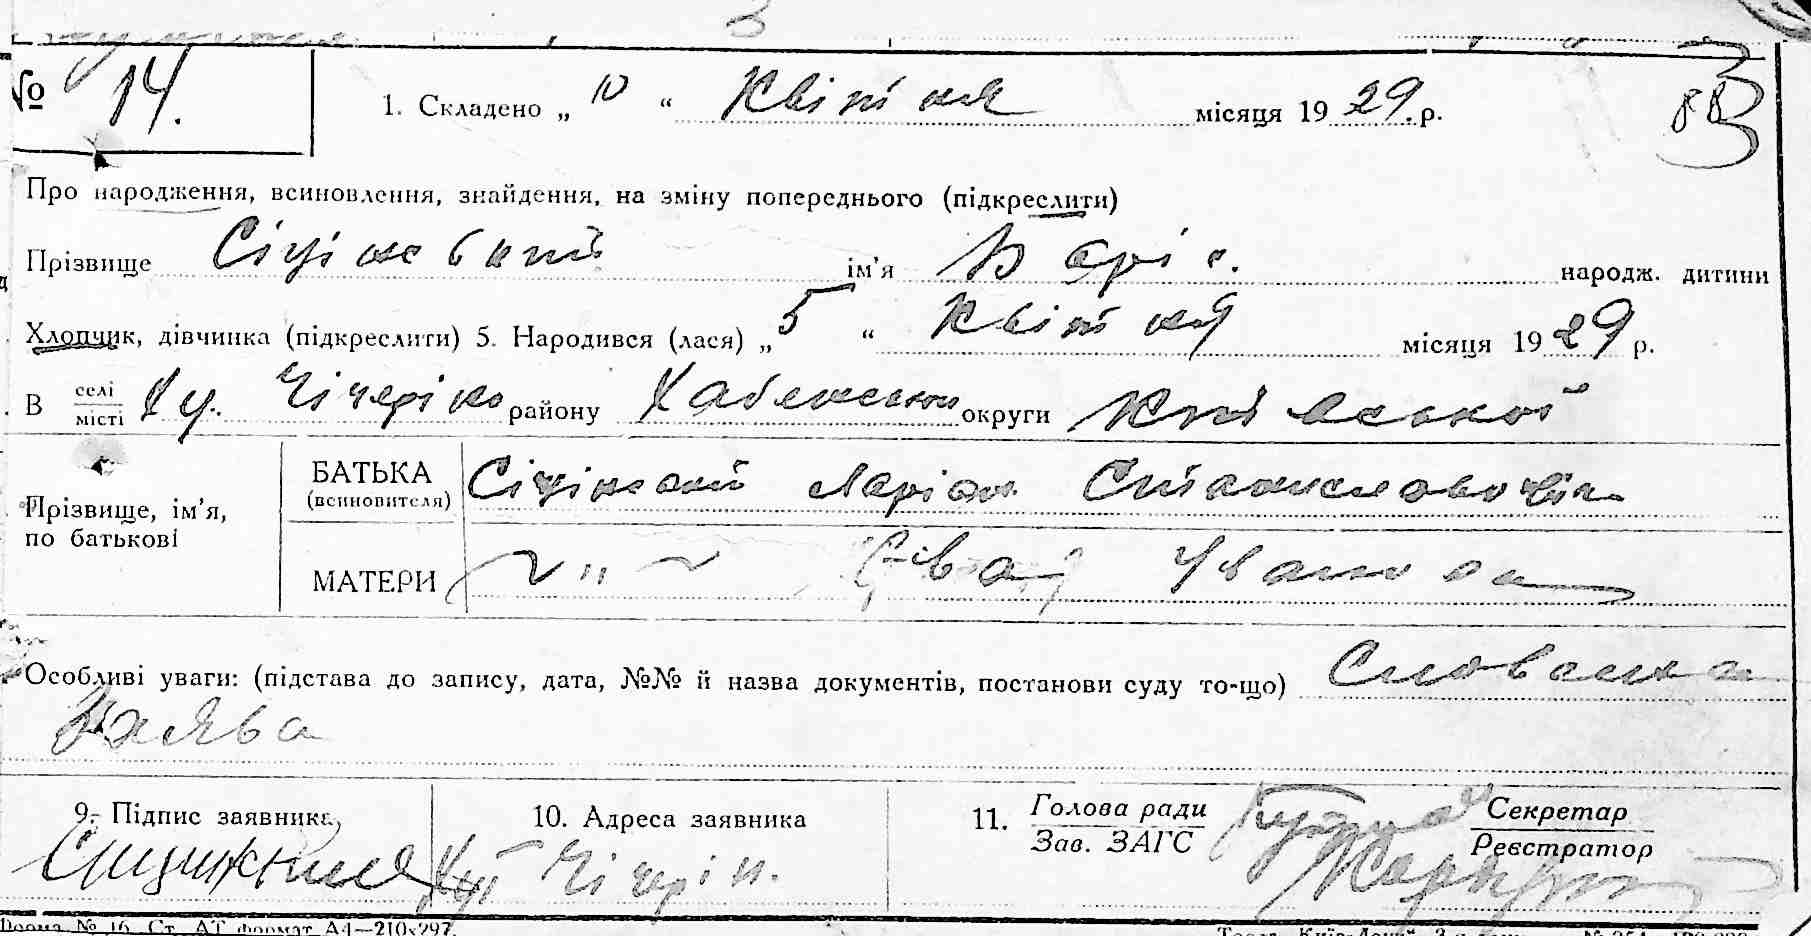 № 14.
1. Складено „ 10 “ Квітня місяця 1929. р.
Про народження, всиновлення, знайдення, на зміну попереднього (підкреслити)
Прізвище ім’я Боріс. народж. дитини
Хлопчик, дівчинка (підкреслити) 5. Народився (лася) „ 5 “ Квітня місяця 1929 р.
В селі/місті Ху. Чічеріно району округи Київської
Прізвище, ім’я, по батькові
БАТЬКА (всиновителя) Маріан Станиславович
МАТЕРИ „ Єва Івановна
Особливі уваги: (підстава до запису, дата, №№ й назва документів, постанови суду то-що) Словесна
Заява
9. Підпис заявника 10. Адреса заявника 11. Голова ради/Зав. ЗАГС Секретар/Реєстратор
Хут Чічерін.
Форма № 16. Ст. АТ формат А4—210х297.